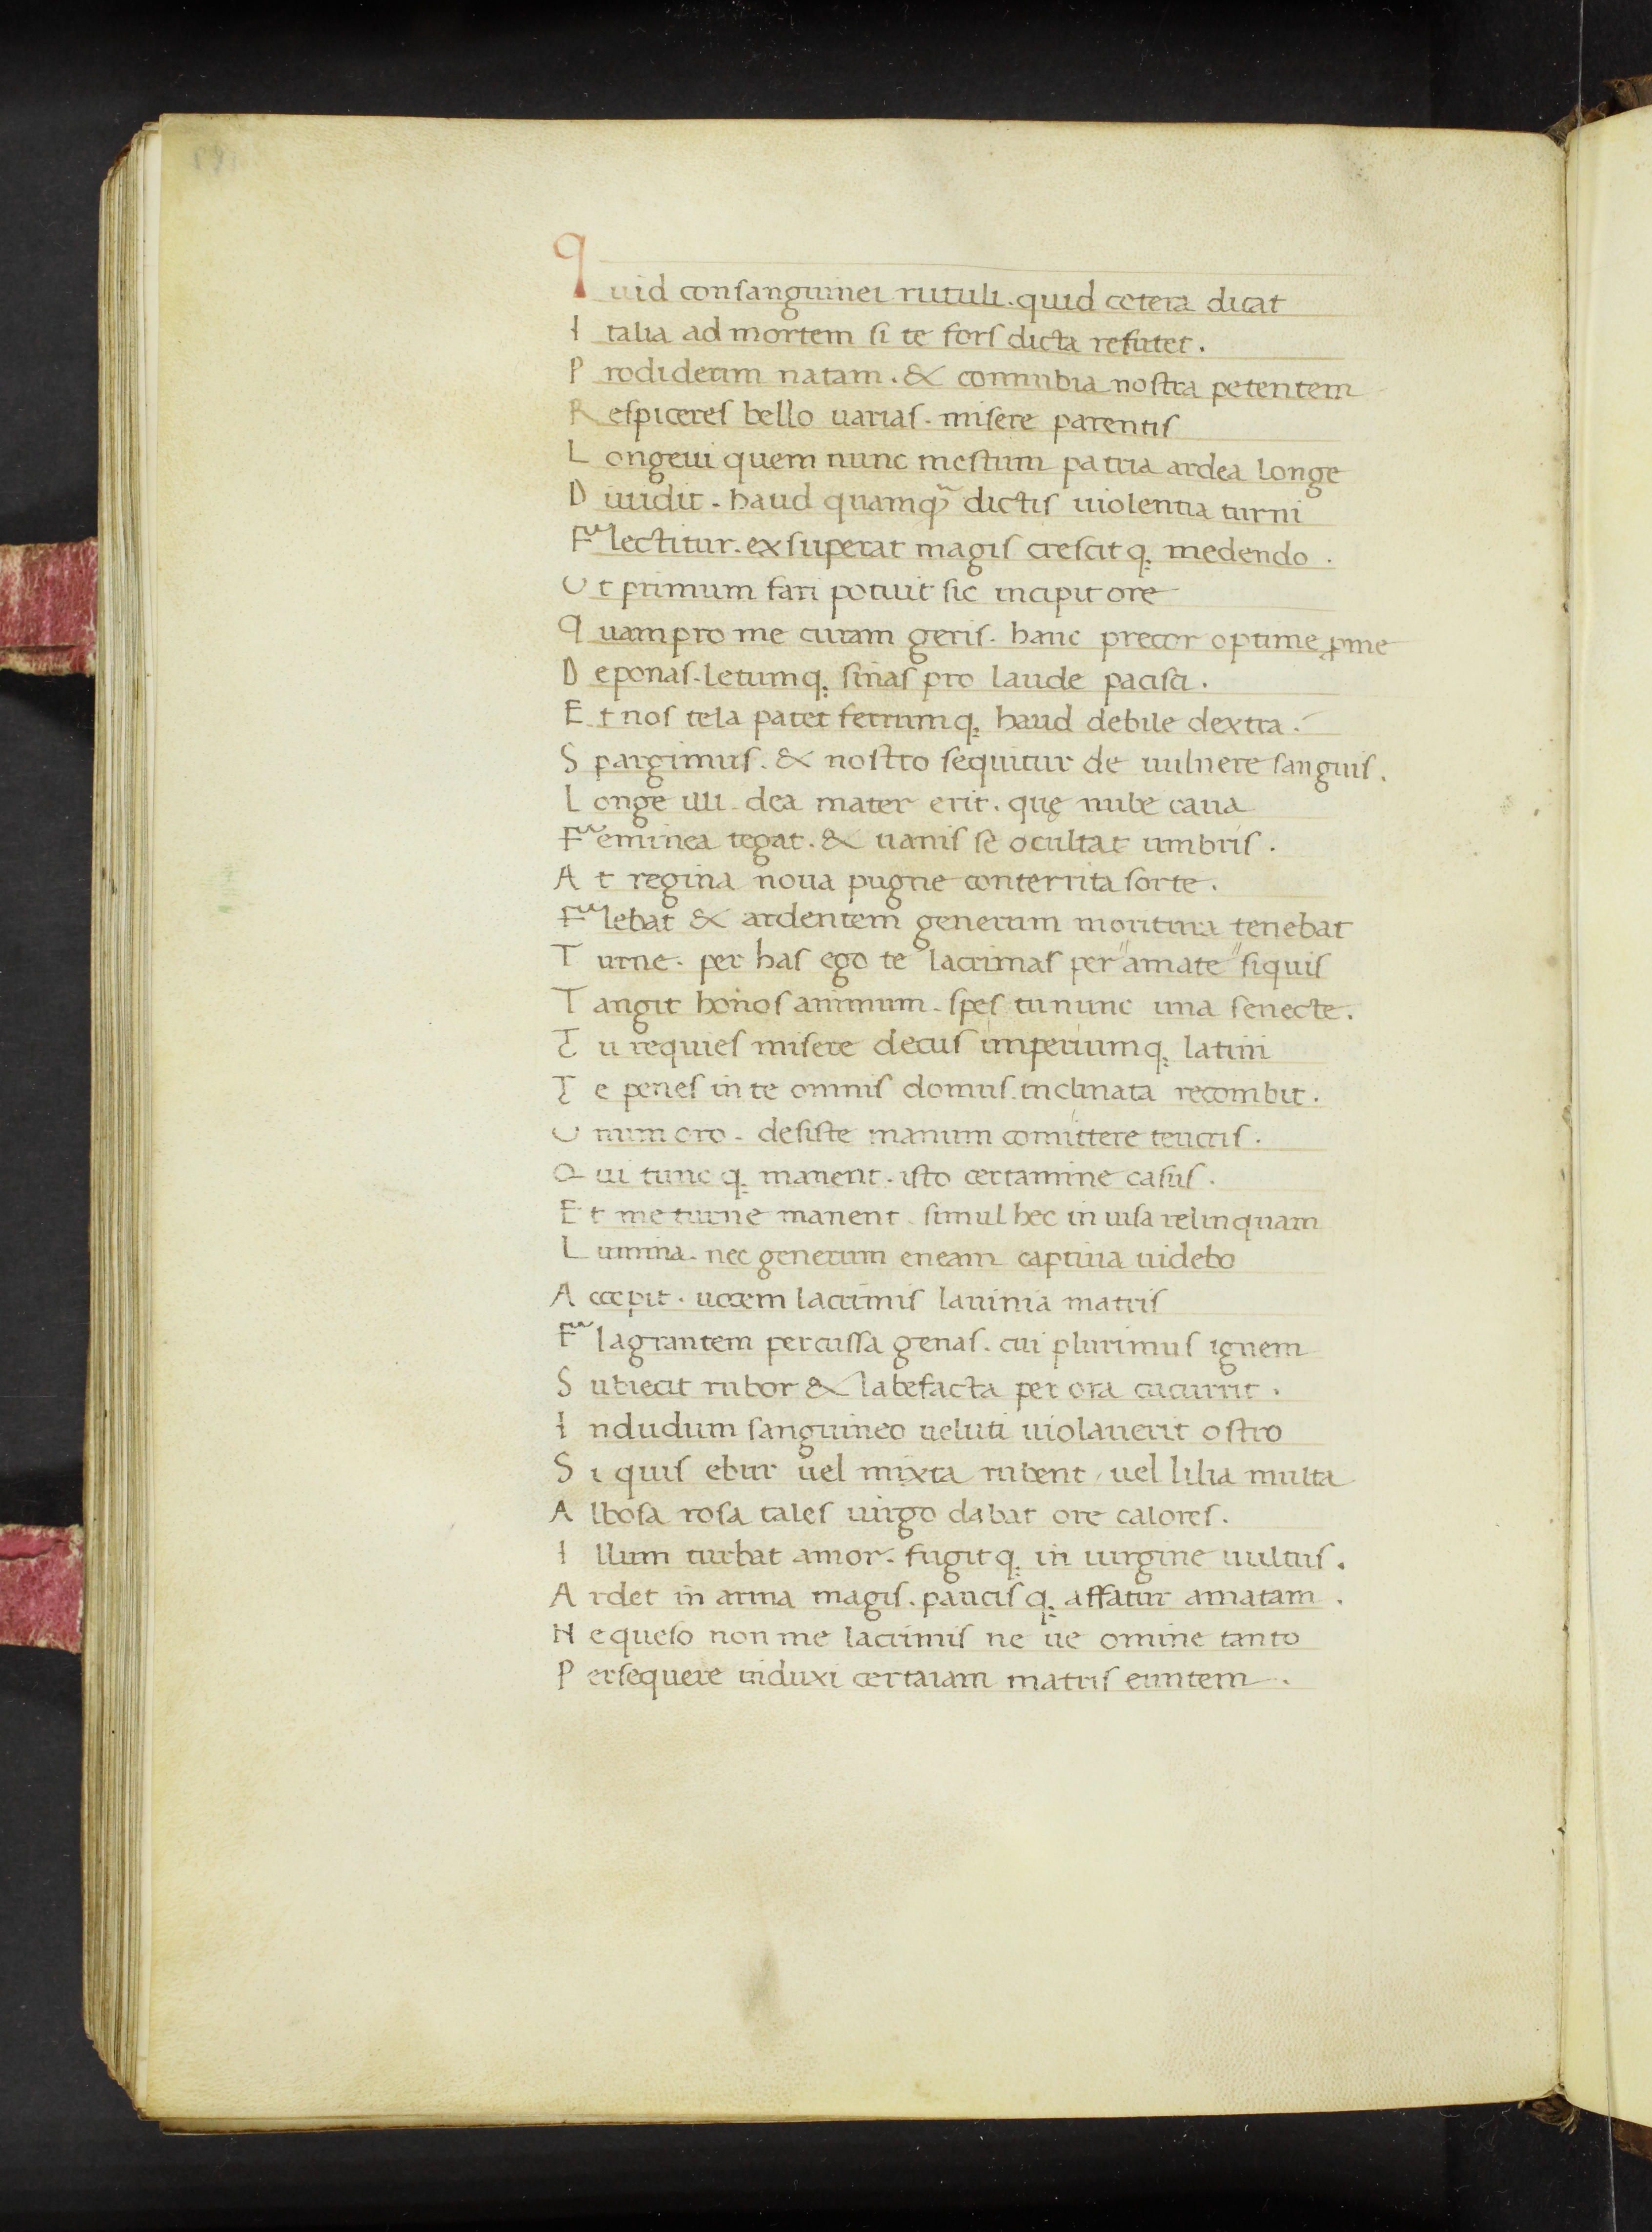 Quid consanguinei rutuli. quid cetera dicat
Italia ad mortem si te fors dicta refutet.
Prodiderim natam. & connubia nostra petentem
Respiceres bello uarias. misere parentis
Longeui quem nunc mestum patria ardea longe
Diuidit. haud quamq̃ dictis uiolentia turni
Flectitur. exsuperat magis crescit q; medendo.
Ut primum fari potuit sic incipit ore
Quam pro me curam geris. hanc precor optime ꝓme
Deponas. letumq; sinas pro laude pacisci.
Et nos tela pater ferrumq; haud debile dextra.
Spargimus. & nostro sequitur de uulnere sanguis.
Longe illi dea mater erit. quę nube caua
Feminea tegat. & uanis se ocultat umbris.
At regina noua pugne conterrita sorte.
Flebat & ardentem generum moritura tenebat
Turne. per has ego te "lacrimas per "amate "siquis
Tangit honos animum. spes tu nunc una senecte.
Tu requies misere decus imperiumq; latini
Te penes in te omnis domus. inclinata recombit.
Unum oro. desiste manum comittere teucris.
Qui tunc q; manent. isto certamine casus.
Et me turne manent. simul hec in uisa relinquam
Lumina. nec generum eneam captiua uidebo
Accepit. uocem lacrimis lauinia matris
Flagrantem percussa genas. cui plurimus ignem
Subiecit rubor & labefacta per ora cucurrit.
Indudum sanguineo ueluti uiolauerit ostro
Si quis ebur uel mixta rubent / uel lilia multa
Albosa rosa tales uirgo dabat ore calores.
Illum turbat amor. fugitq; in uirgine uultus.
Ardet in arma magis. paucisq; affatur amatam.
Ne queso non me lacrimis ne ue omine tanto
Persequere induxi certaiam matris euntem.